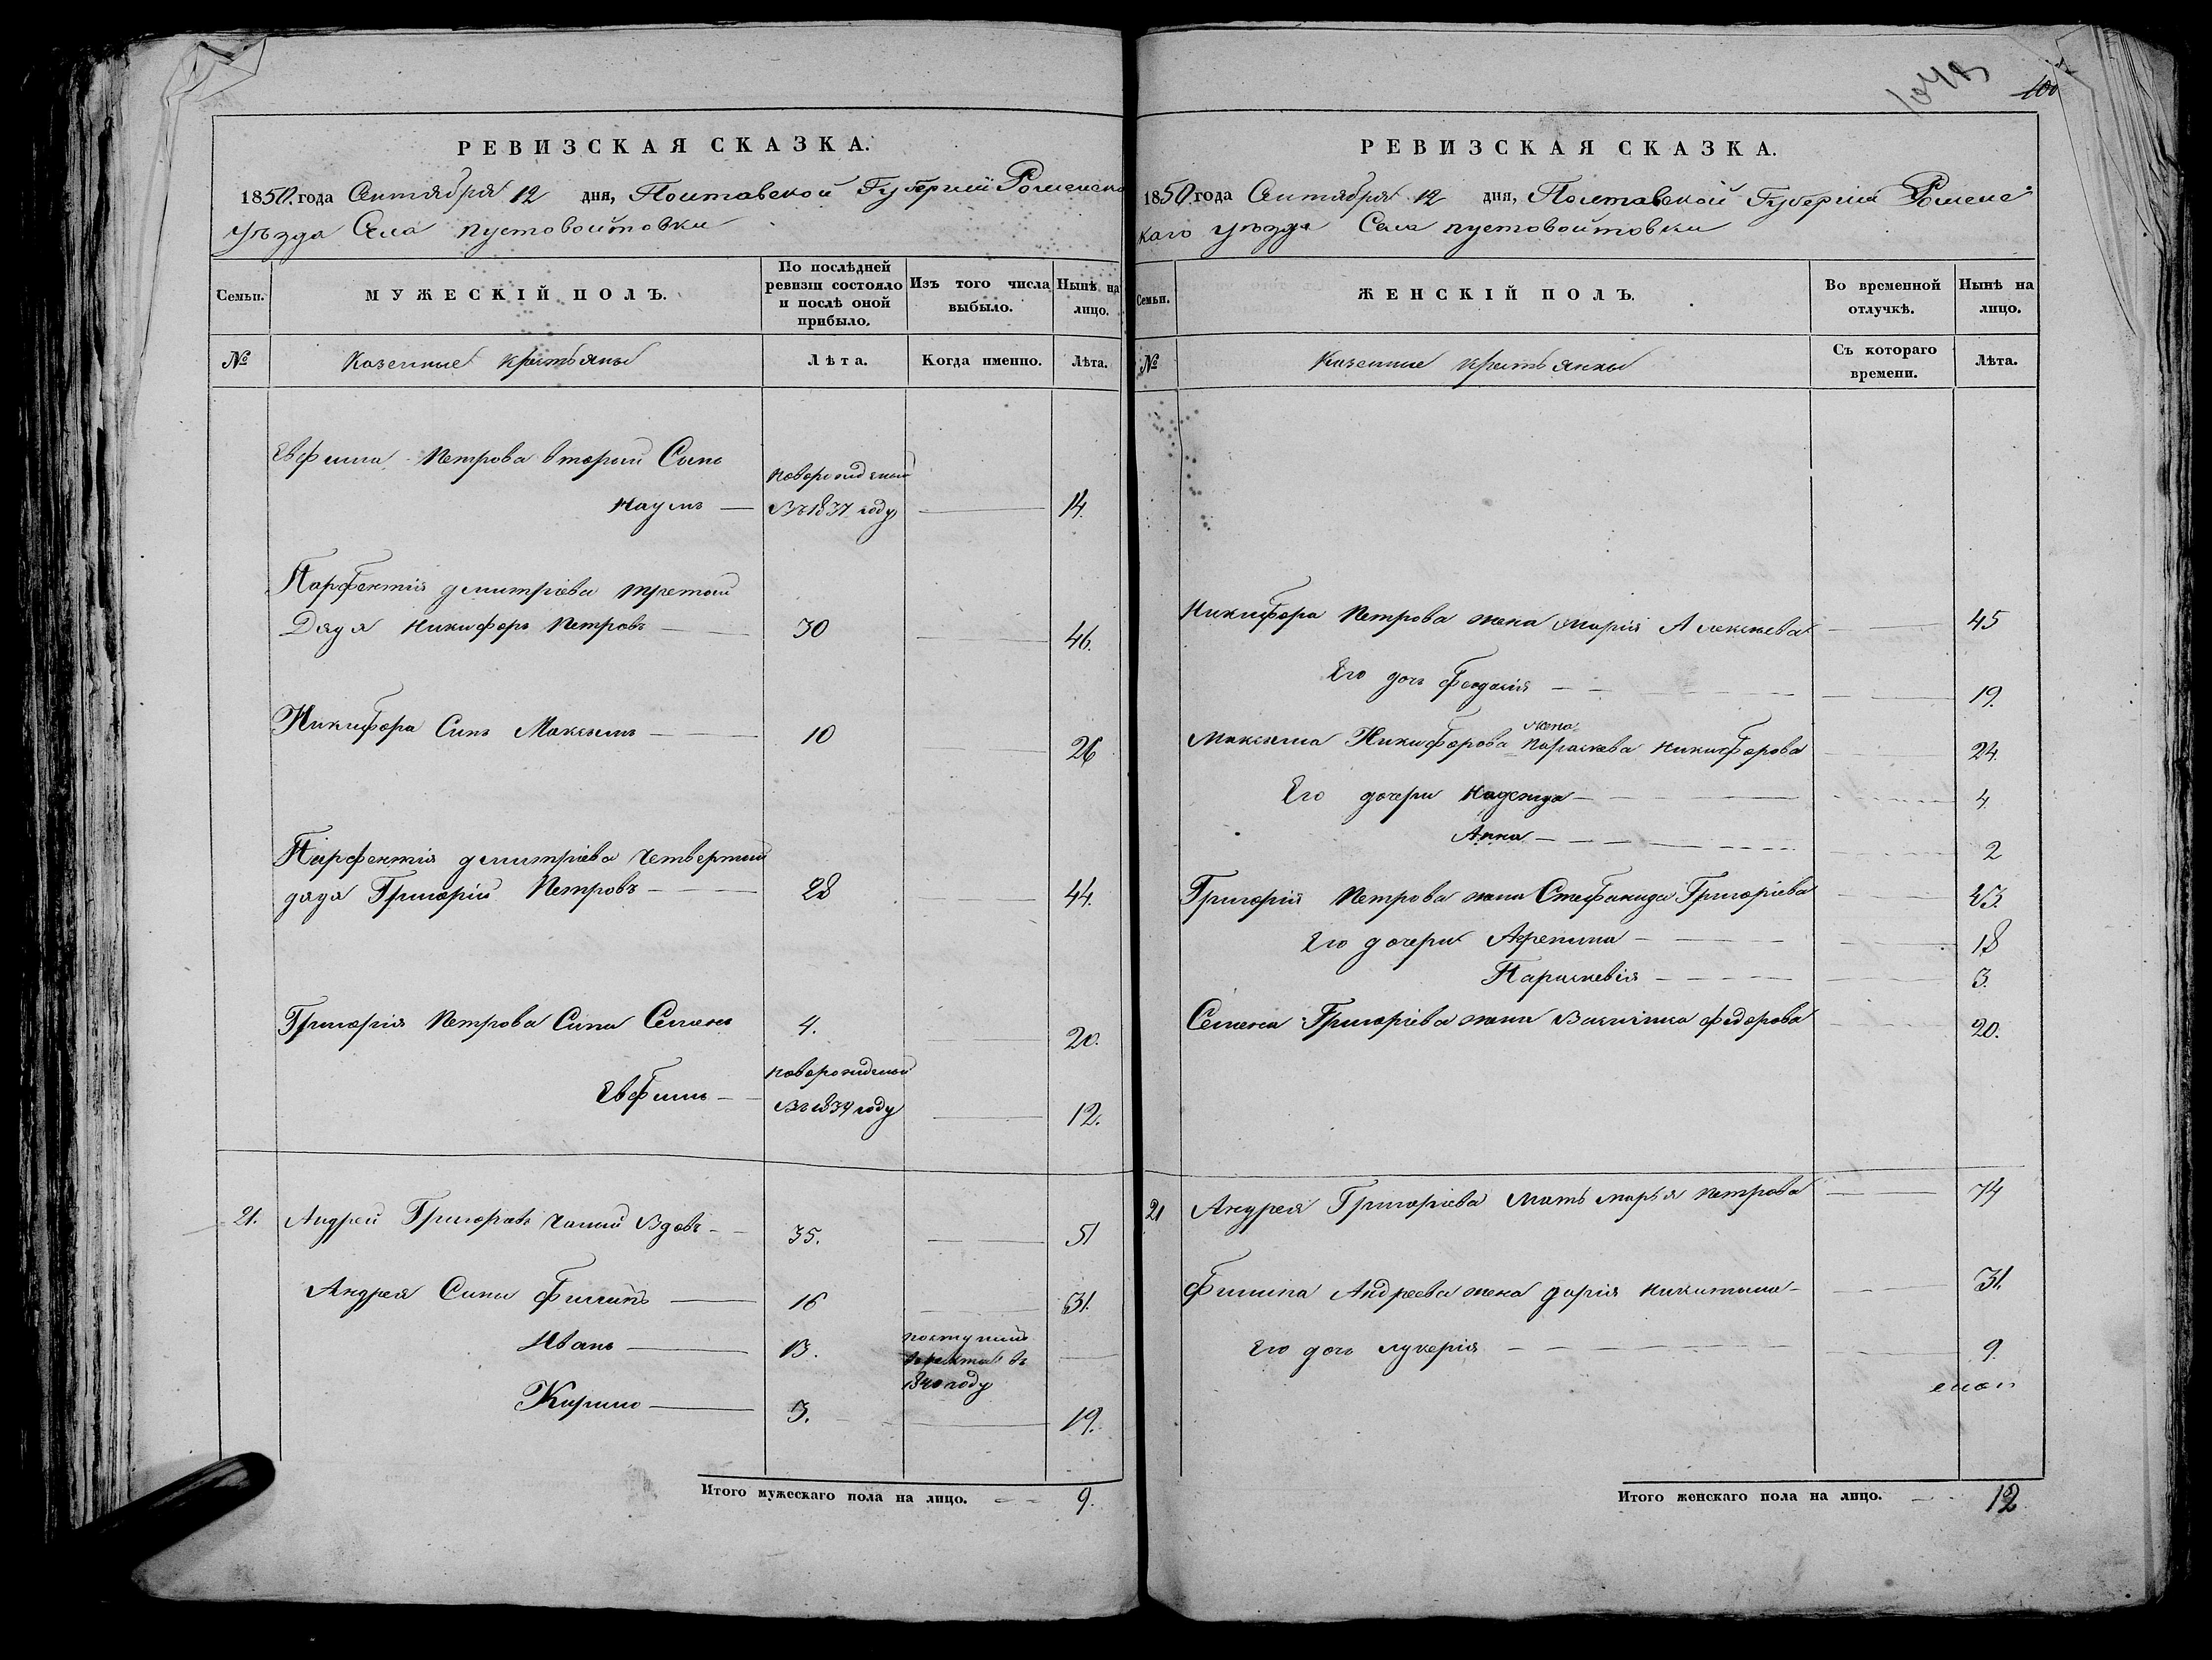 РЕВИЗСКАЯ СКАЗКА.
1850 года Сентября 12 дня, Полтавской Губернии Роменско
уѣзда Села пустовойтовки
Семьи. МУЖЕСКІЙ ПОЛЪ. По послѣдней ревизіи состояло и послѣ оной прибыло. Изъ того числа выбыло. Нынѣ на лицо.
№ Казенные крестьяны Лѣта. Когда именно. Лѣта.
Евфима Петрова вторый Сынъ
Наумъ — новорожденый въ 1837 году 14.
Парфентія димитріева третий
Дядя Никифоръ Петровъ 30 46.
Никифора Сынъ Максымъ 10 26
Парфентія димитріева Четвертый
дядя Григорій Петровъ 28 44.
Григорія Петрова Сыны Семенъ 4. 20.
Евфимъ новорожденый въ 1839 году 12.
21. Андрей Григоровъ Вдовъ 35. 51
Андрея Сыны Филипъ 16 31.
Иванъ 13. поступилъ въ 1840 году
Кирило 3. 19.
Итого мужескаго пола на лицо. 9.
100
РЕВИЗСКАЯ СКАЗКА.
1850 года Сентября 12 дня, Полтавской Губерніи Роменс
каго уѣзда Села пустовойтовки
Семьи. ЖЕНСКІЙ ПОЛЪ. Во временной отлучкѣ. Нынѣ на лицо.
№ Казенные крестьянки Съ котораго времени. Лѣта.
Никифора Петрова жена Марія Алексѣева 45
Его дочь Феодосія 19.
жена
Максыма Никифорова Параскева Никифорова 24.
Его дочери Надежда 4.
Анна 2
Григорія Петрова жена Стефанида Григоріева 43.
Его дочери Агрепина 18
Параскевія 3.
Семена Григоріева жена Василиса федорова 20.
21 Андрея Григоріева Мать Марья Петрова 74
Филипа Андреева жена дарія никитина 31.
Его дочь лукерія 9.
Итого женскаго пола на лицо. 12